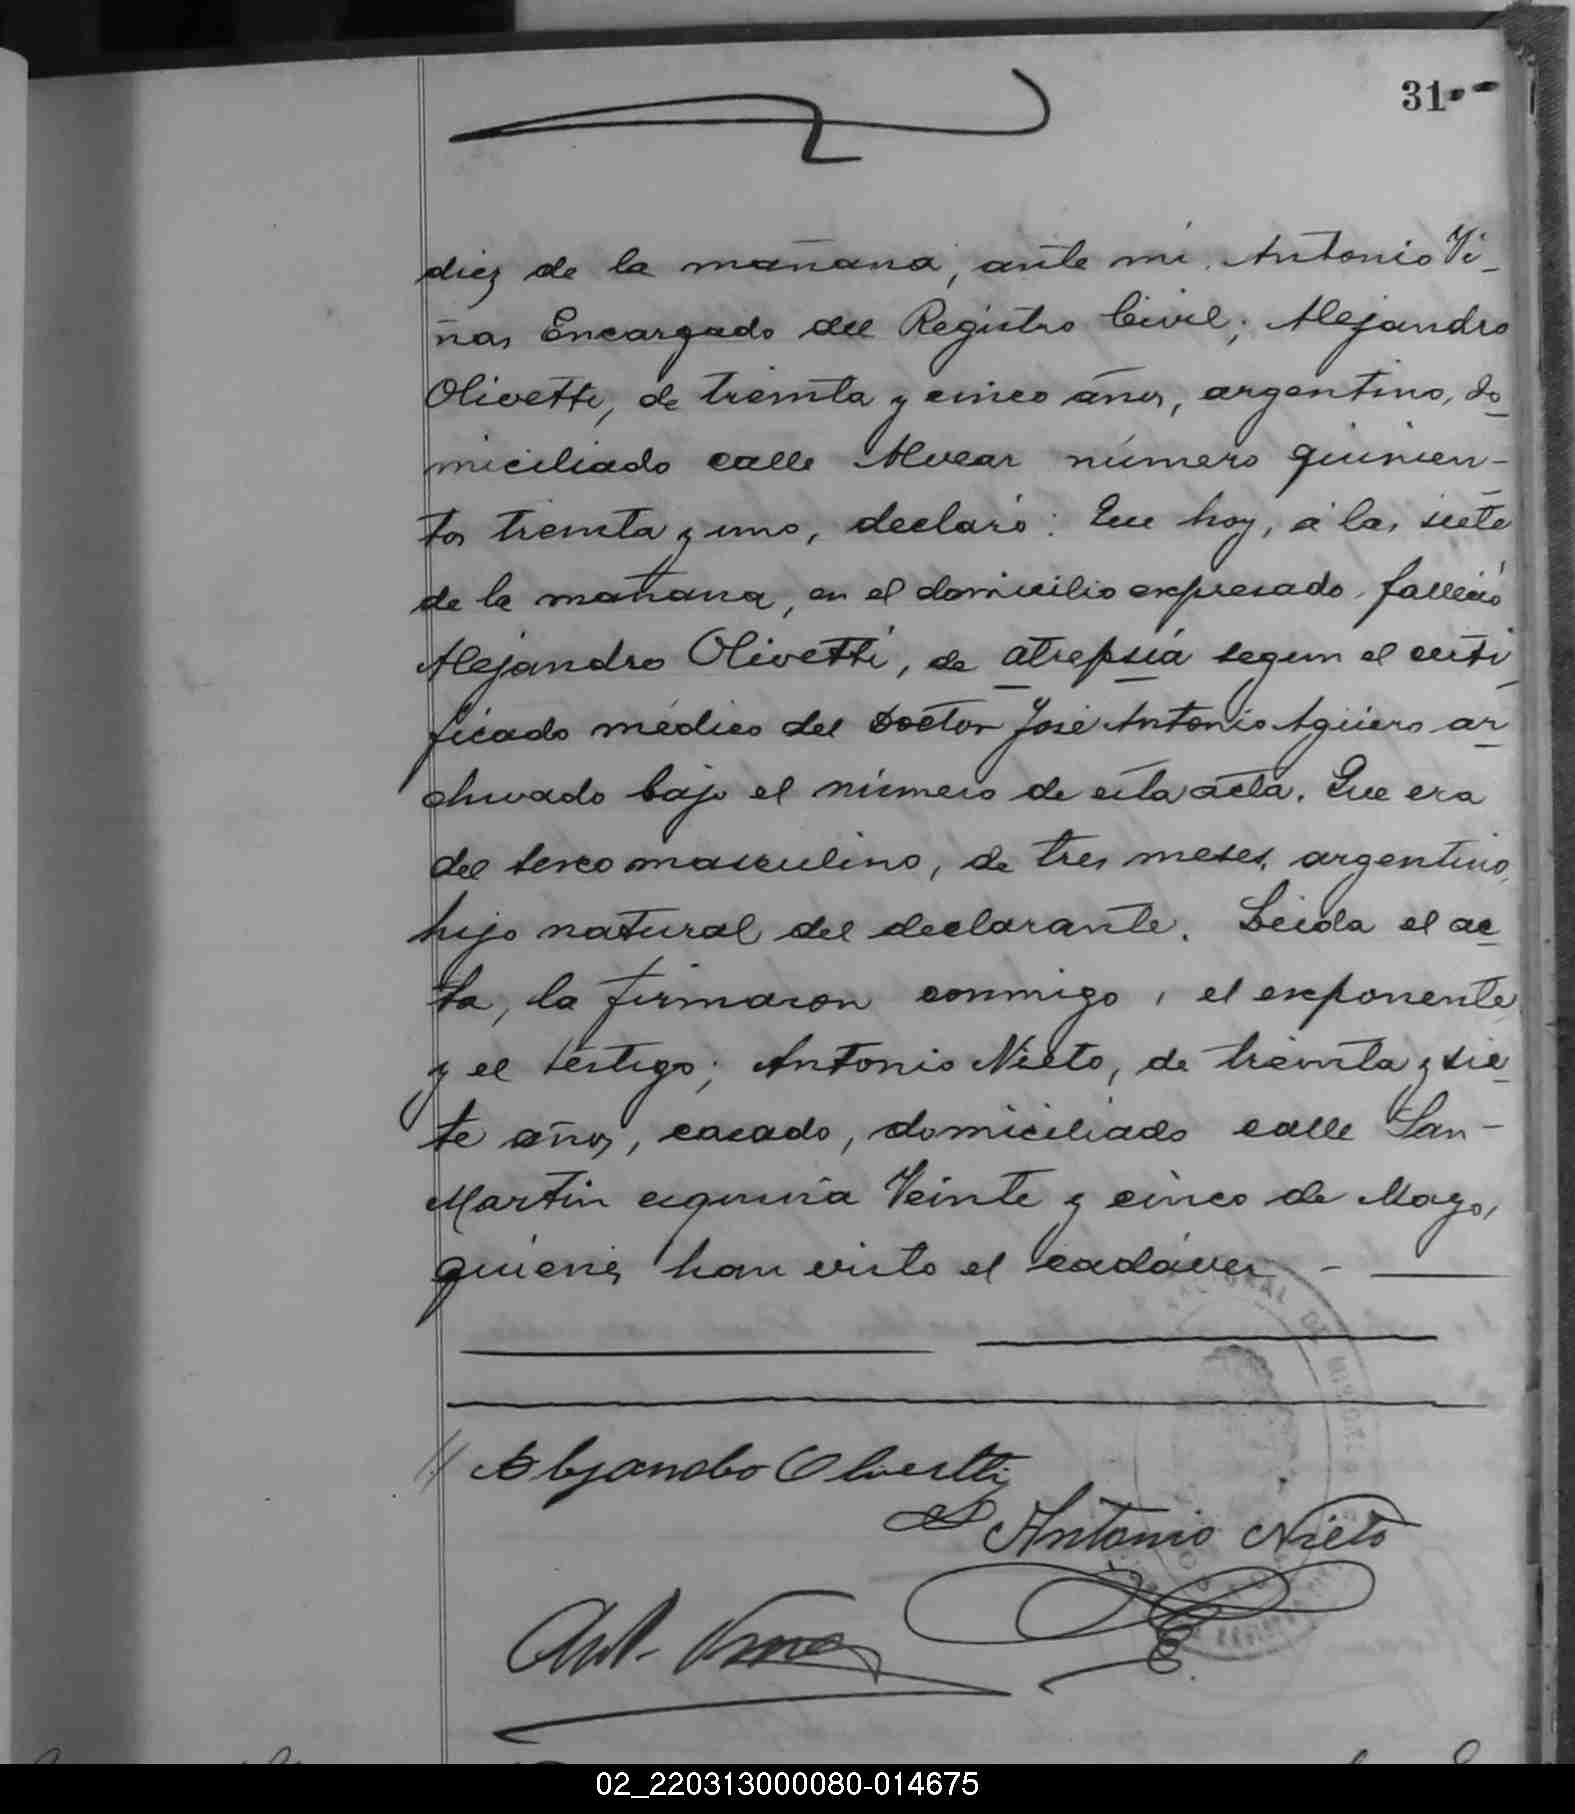 31
diez de la mañana, ante mi, Antonio Vi-
ñas Encargado del Registro Civil; Alejandro
Olivetti, de treinta y cinco años, argentino, do-
miciliado calle Alvear número quinien-
tos treinta y uno, declaró: Que hoy, á las siete
de la mañana, en el domicilio expresado, falleció
Alejandro Olivetti, de atrepsia segun el certi-
ficado médico del Doctor José Antonio Agüero ar-
chivado bajo el número de esta acta. Que era
del sexo masculino, de tres meses, argentino,
hijo natural del declarante. Leida el ac-
ta, la firmaron conmigo, el exponente
y el testigo; Antonio Nieto, de treinta y sie-
te años, casado, domiciliado calle San-
Martin esquina Veinte y cinco de Mayo,
quienes han visto el cadáver
Alejandro Olivetti
Antonio Nieto
Ant. Viñas
02_220313000080-014675